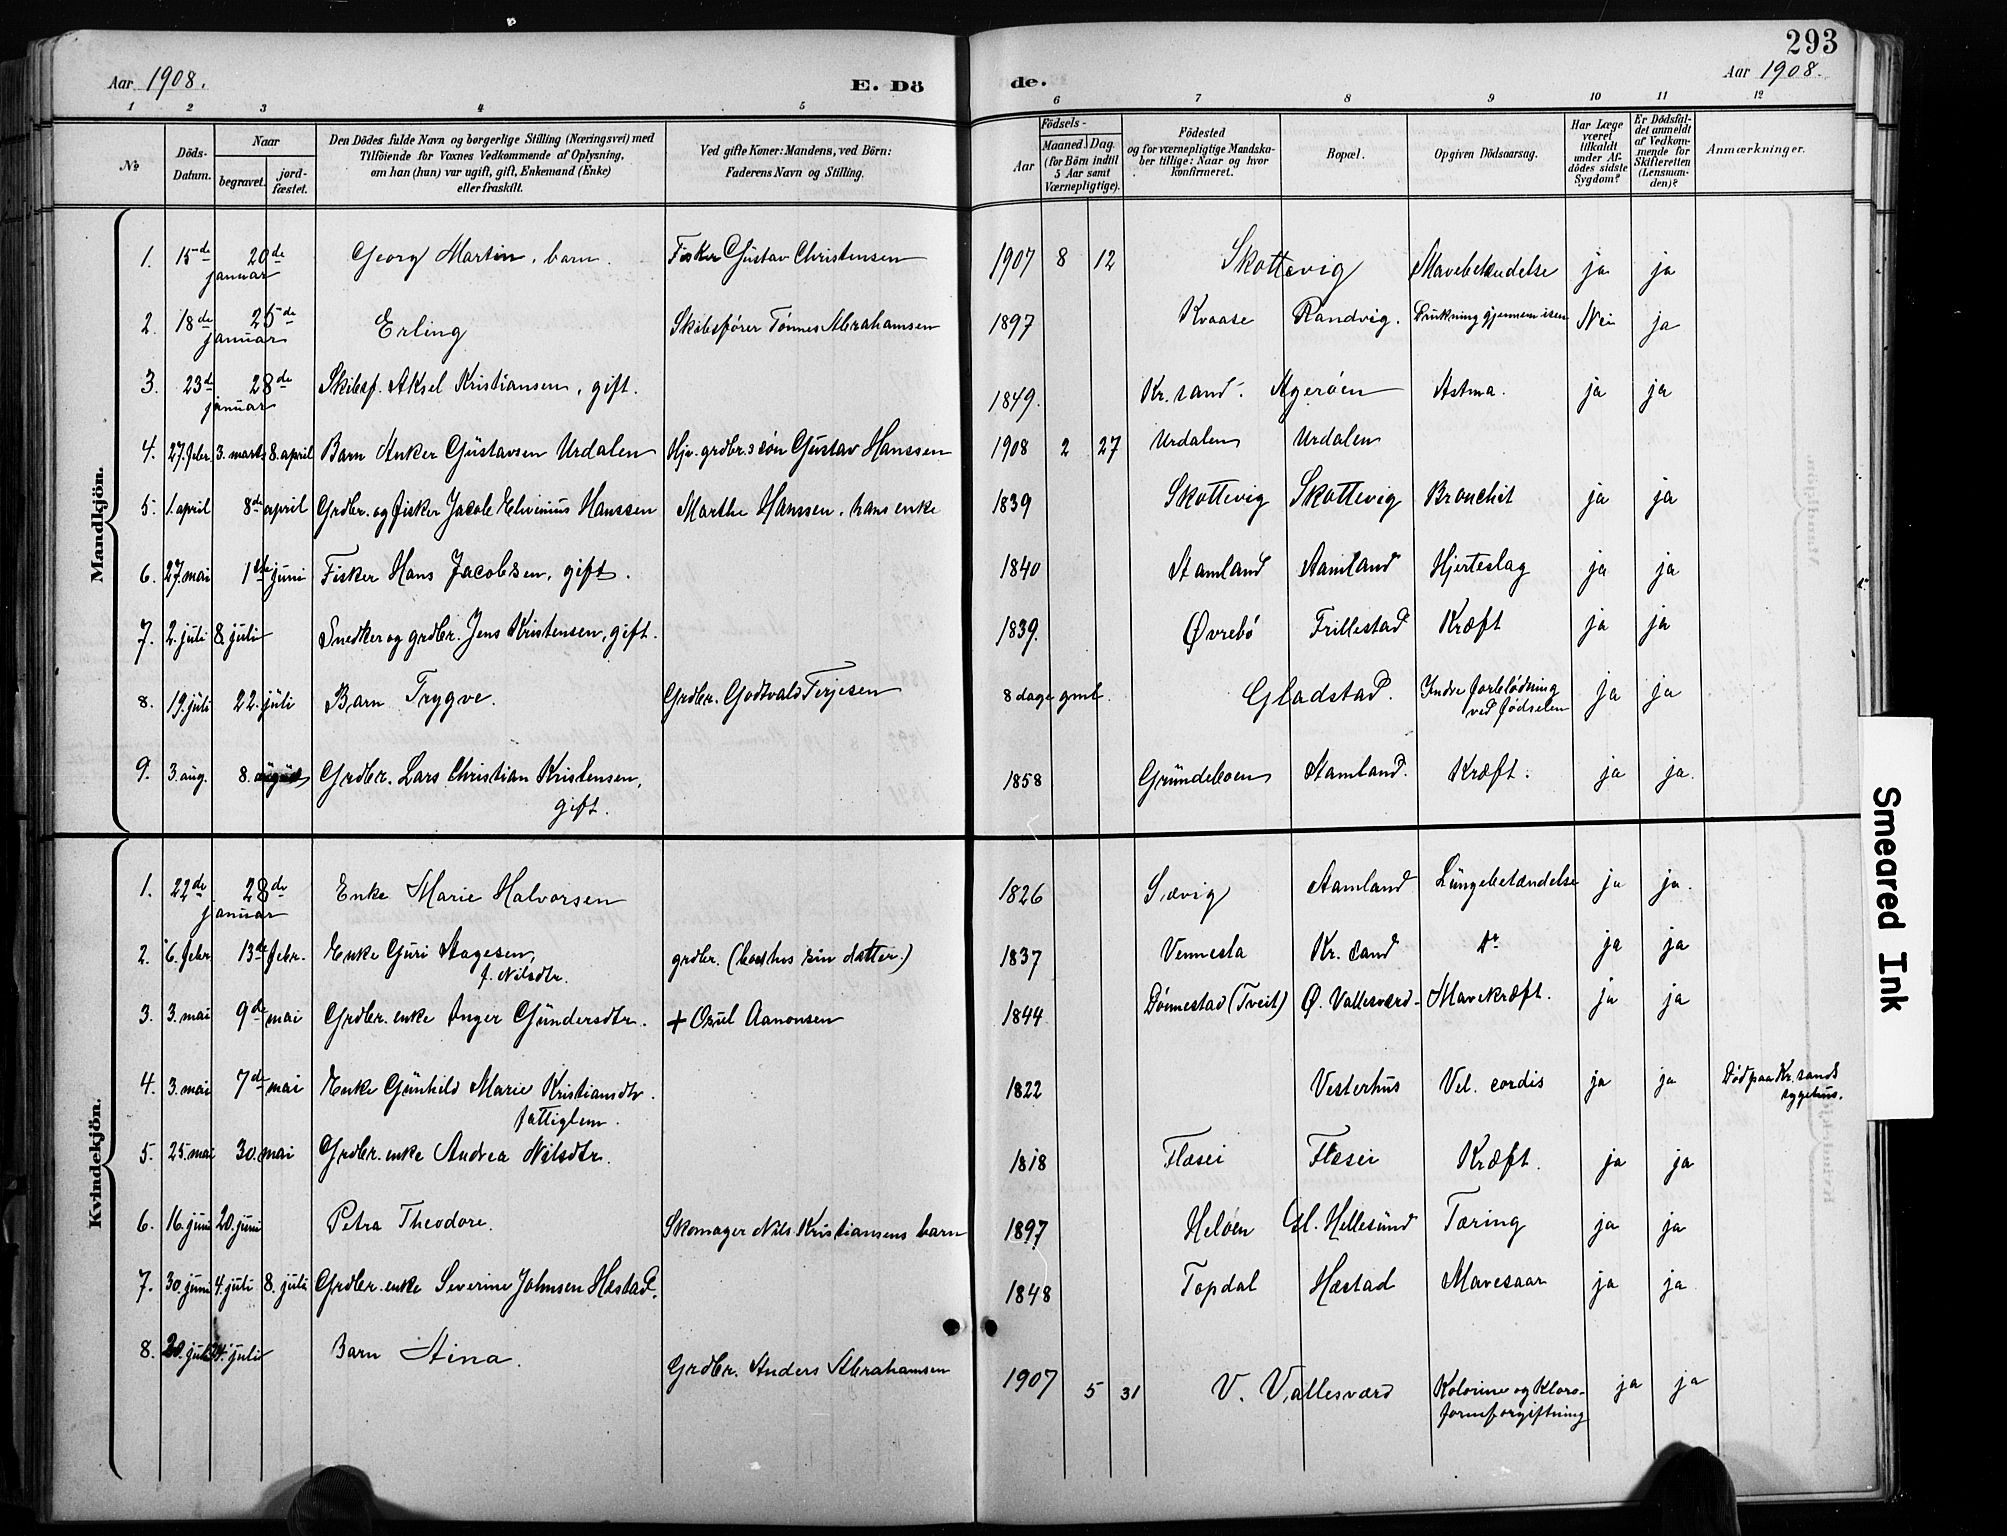 293
Aar 1908.
E. Dö
de.
Aar 1908.
1 2 3 4 5 6 7 8 9 10 11 12
No
Döds-Datum.
Naar
begravet.
jord-fæstet.
Den Dödes fulde Navn og borgerlige Stilling (Næringsvei) med
Tilföiende for Voxnes Vedkommende af Oplysning,
om han (hun) var ugift, gift, Enkemand (Enke)
eller fraskilt.
Ved gifte Koner: Mandens, ved Börn:
Faderens Navn og Stilling.
Födsels-
Aar
Maaned. Dag.
(for Börn indtil
5 Aar samt
Værnepligtige).
Födested
og for værnepligtige Mandska-
ber tillige: Naar og hvor
konfirmeret.
Bopæl.
Opgiven Dödsaarsag.
Har Læge
været
tilkaldt
under Af-
dödes sidste
Sygdom?
Er Dödsfal-
det anmeldt
af Vedkom-
mende for
Skifteretten
(Lensman-
den)?
Anmærkninger.
Mandkjön.
1. 15de 20de januar Georg Martin, barn. Fisker Gustav Christensen 1907 8 12 Skottevig Mavebetændelse ja ja
2. 18de 25de januar Erling Skibsfører Tønnes Abrahamsen 1897 Kvaase Randvig. Drukning gjennem isen Nei ja
3. 23d 28de januar Skibsf. Aksel Kristiansen, gift. 1849. Kr.sand. Agerøen Astma. ja ja
4. 27. febr. 3. marts 8. april Barn Anker Gustavsen Urdalen Hjv. grdbr.s søn Gustav Hanssen 1908 2 27 Urdalen Urdalen
5. 1. april 8de april Grdbr. og fisker Jacob Elvinius Hanssen Marthe Hanssen, hans enke 1839 Skottevig Skottevig Bronchit ja ja
6. 27. mai 1ste juni Fisker Hans Jacobsen, gift. 1840 Stamland Aamland Hjerteslag ja ja
7. 2. juli 8. juli Snedker og grdbr. Jens Kristensen, gift. 1839. Øvrebø Frillestad Kræft ja ja
8. 19. juli 22. juli Barn Trygve. Grdbr. Godtvald Terjesen 8 dage gml. Gladstad. Indre forblødning ved fødselen ja ja
9. 3. aug. 8. august Grdbr. Lars Christian Kristensen, gift. 1858 Grundeboen Aamland. Kræft. ja ja.
Kvindekjön.
1. 22de 28de januar Enke Marie Halvorsen 1826 Sævig Aamland Lungebetændelse ja ja.
2. 6. febr. 13de febr. Enke Guri Aagesen, f. Nilsdtr. grdbr. (boed hos sin datter.) 1837 Vennesla Kr.sand Do ja ja
3. 3. mai 9de mai Grdbr. enke Inger Gundersdtr. + Osul Aanonsen 1844 Dønnestad (Tveit) Ø. Vallesværd. Mavekræft. ja ja
4. 3. mai 7de mai Enke Gunhild Marie Kristiansdtr. fattiglem. 1822 Vesterhus Vel. cordis ja ja Død paa Kr.sands sygehus.
5. 25. mai 30. mai Grdbr. enke Andrea Nilsdtr. 1818 Flasei Flasei Kræft. ja ja
6. 16. juni 20. juni Petra Theodore. Skomager Nils Kristiansens barn 1897 Heløen Gl. Hellesund Tæring ja ja
7. 30. juni 4. juli 8. juli Grdbr. enke Severine Johnsen Hæstad. 1848 Topdal Hæstad Mavesaar ja ja
8. 20. juli 24. juli Barn Aina. Grdbr. Anders Abrahamsen 1907 5 31 V. Vallesværd Kolorine og Kloro-
formforgiftning ja ja
Smeared Ink